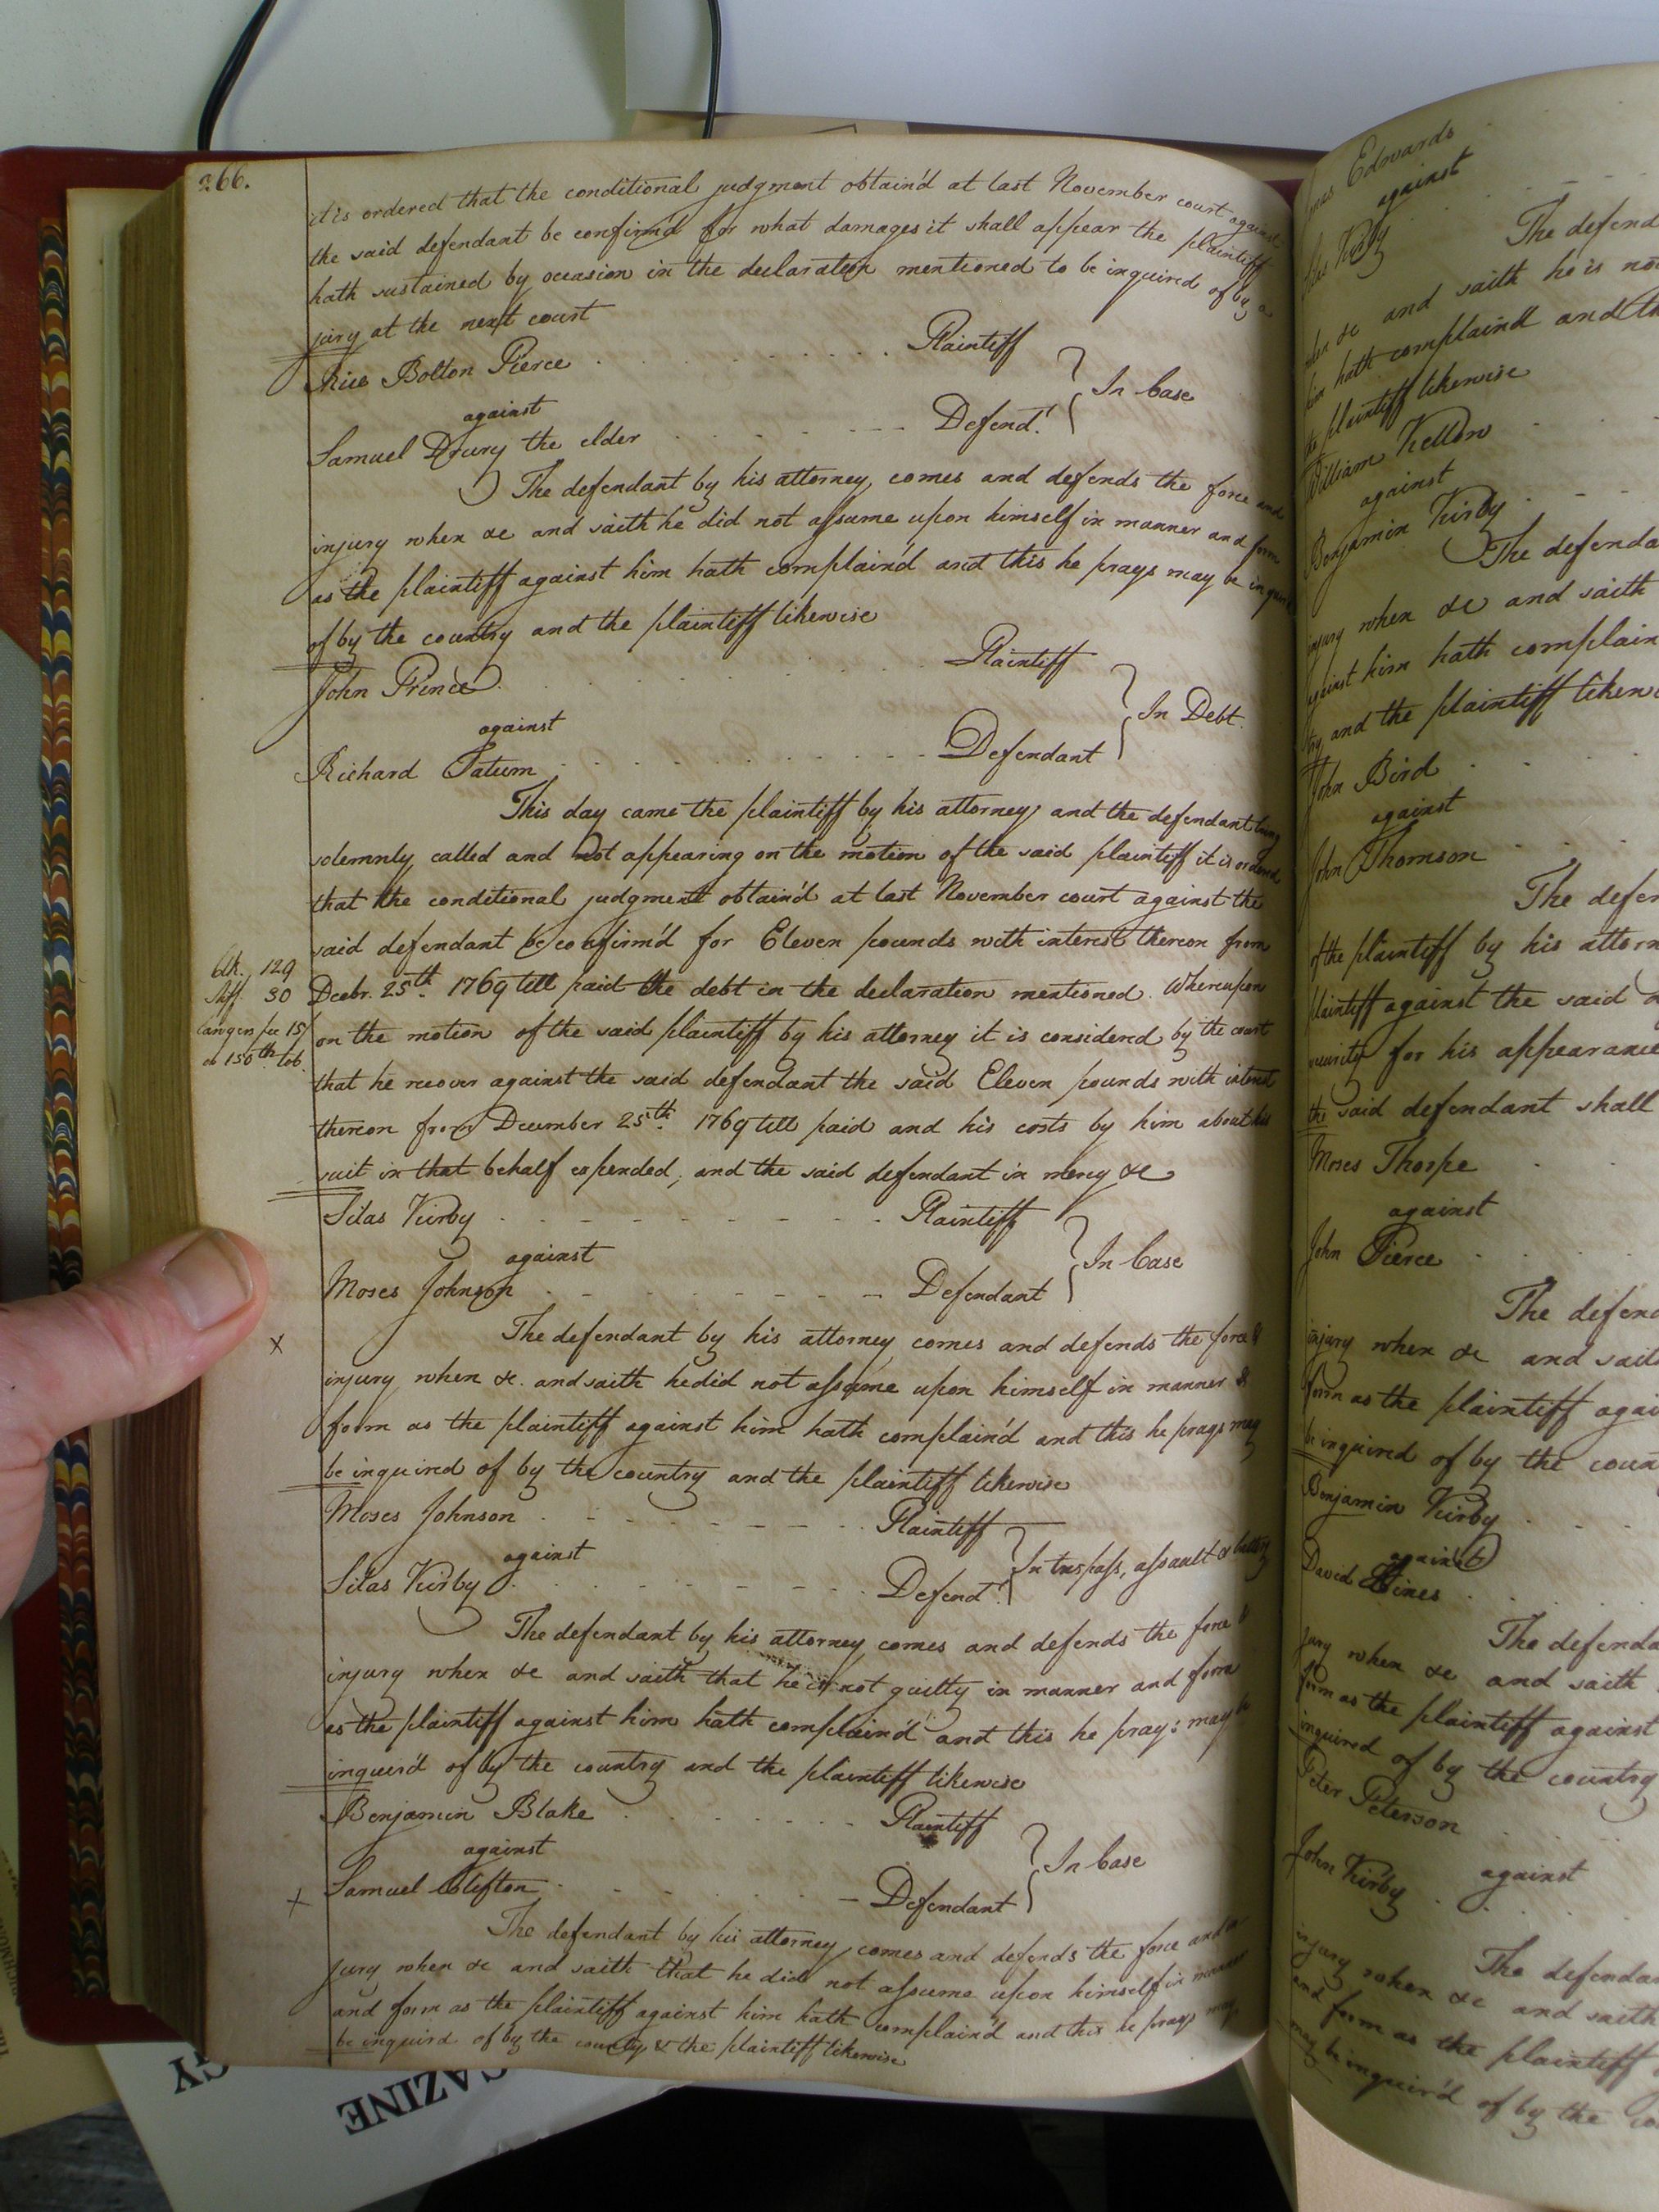 266.
it is ordered that the conditional judgment obtain'd at last November court against
the said defendant be confirm'd for what damages it shall appear the plaintiff
hath sustained by occasion in the declaration mentioned to be inquired of by a
jury at the next court
Rice Bolton Pierce Plaintiff
against
In Case
Samuel Drury the elder Defend.t
The defendant by his attorney comes and defends the force and
injury when &c and saith he did not assume upon himself in manner and form
as the plaintiff against him hath complain'd and this he prays may be inquired
of by the country and the plaintiff likewise
John Prince Plaintiff
against
In Debt.
Richard Tatum Defendant
This day came the plaintiff by his attorney and the defendant being
solemnly called and not appearing on the motion of the said plaintiff it is ordered
that the conditional judgment obtain'd at last November court against the
said defendant be confirm'd for Eleven pounds with interest thereon from
Clk. 129
Shff. 30
Decbr. 25th. 1769 till paid the debt in the declaration mentioned. Whereupon
fee 15/
or 150th. tob.
on the motion of the said plaintiff by his attorney it is considered by the court
that he recover against the said defendant the said Eleven pounds with interest
thereon from December 25th. 1769 till paid and his costs by him about his
suit in that behalf expended; and the said defendant in mercy &c
Silas Kirby Plaintiff
against
In Case
Moses Johnson Defendant
X
The defendant by his attorney comes and defends the force &
injury when &c. and saith he did not assume upon himself in manner &
form as the plaintiff against him hath complain'd and this he prays may
be inquired of by the country and the plaintiff likewise
Moses Johnson Plaintiff
against
In trespass, assault & battery
Silas Kirby Defend.t
The defendant by his attorney comes and defends the force &
injury when &c and saith that he is not guilty in manner and form
as the plaintiff against him hath complain'd and this he prays may be
inquir'd of by the country and the plaintiff likewise
Benjamin Blake Plaintiff
against
In Case
X
Samuel Clifton Defendant
The defendant by his attorney comes and defends the force and in
jury when &c and saith that he did not assume upon himself in manner
and form as the plaintiff against him hath complain'd and this he prays may
be inquird of by the county & the plaintiff likewise
Edwards
against
Kirby
The defend
&c and saith he is not
hath complaind and th
plaintiff likewise
William Kellow
against
Benjamin Kirby
The defenda
injury when &c and saith
against him hath complain
try and the plaintiff likewi
John Bird
against
John Thomson
The defen
of the plaintiff by his attorn
plaintiff against the said d
security for his appearance
the said defendant shall
Moses Thorpe
against
John Pierce
The defend
injury when &c and sait
form as the plaintiff agai
be inquired of by the coun
Benjamin Kirby
against
David Hines
The defenda
jury when &c and saith
form as the plaintiff against
inquired of by the country
Peter Peterson
against
John Kirby
The defendan
injury when &c and saith
and form as the plaintiff
may be inquir'd of by the co
AZINE
GY